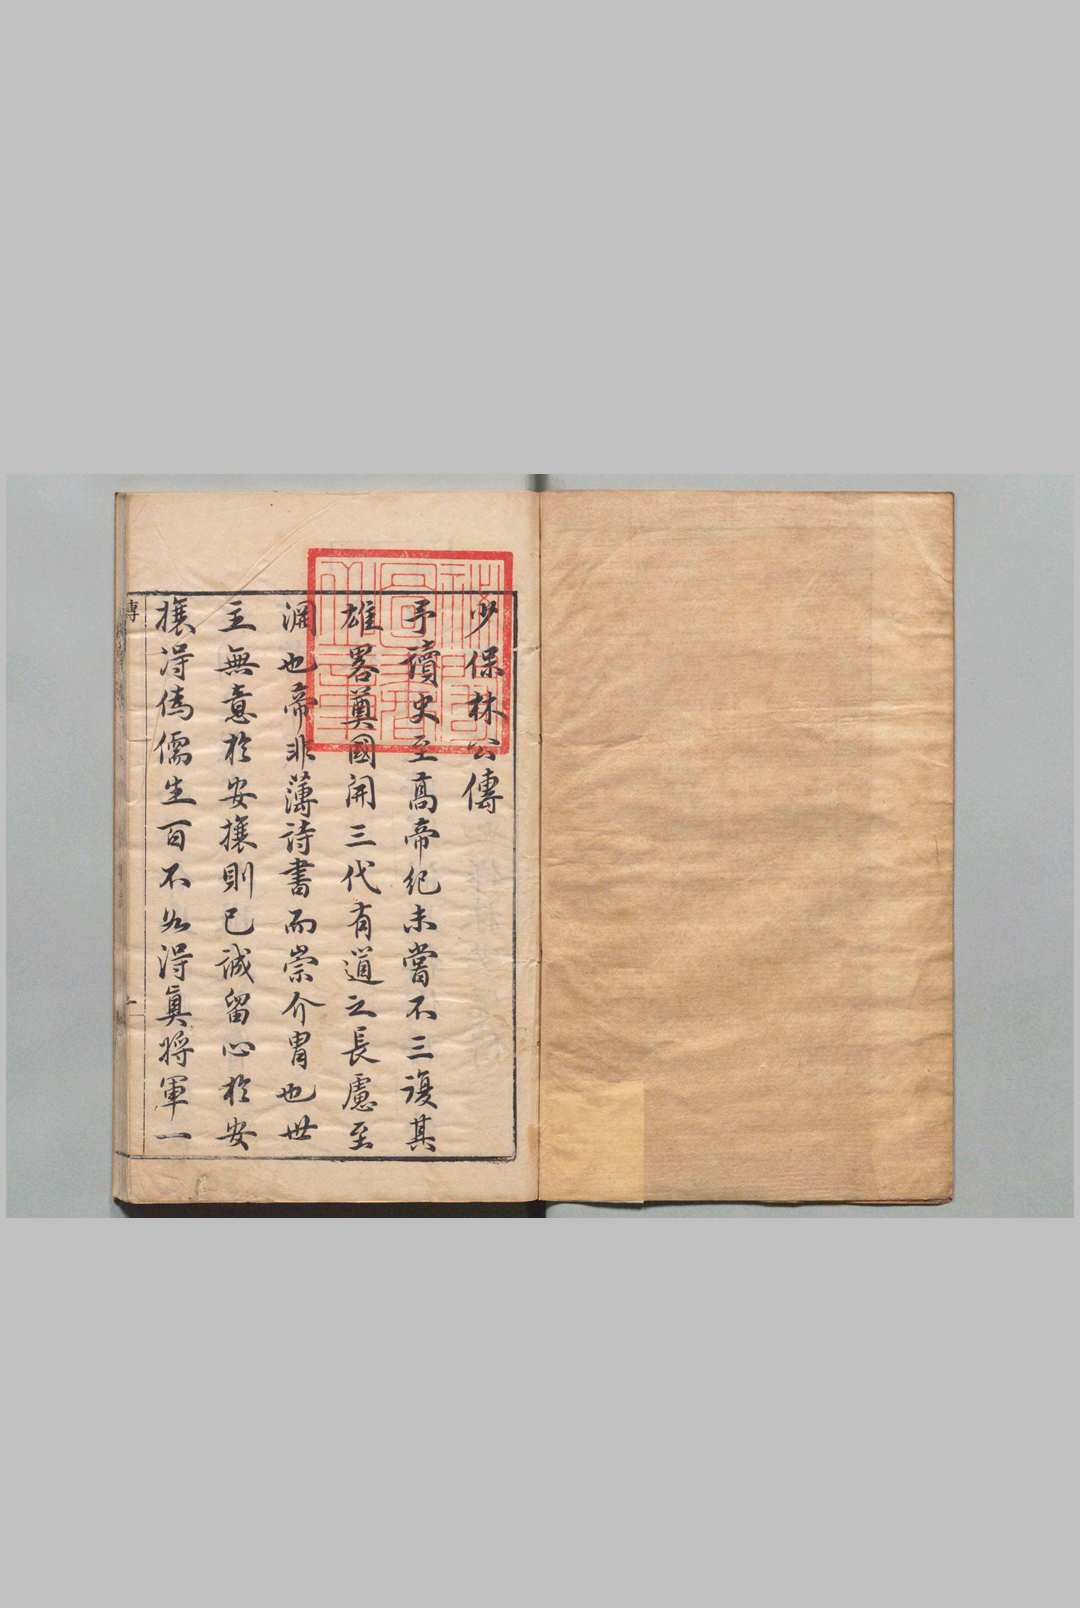 少保林公傳
予讀史至高帝紀未嘗不三復其
雄畧奠國開三代有道之長慮至
淵也帝非薄詩書而崇介冑也世
主無意於安攘則已誠留心於安
攘得偽儒生百不如得眞將軍一
傳